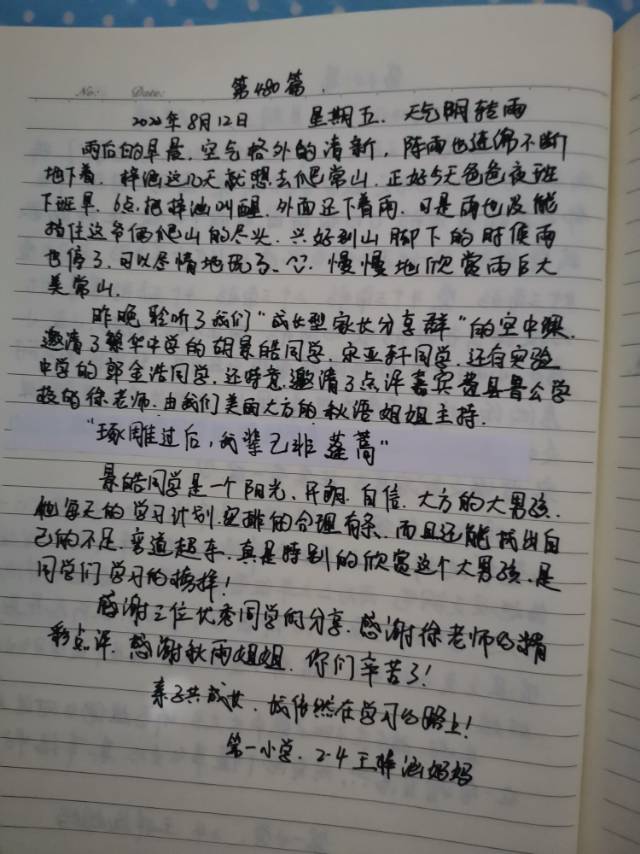 No: Date: 第480篇.
2020年8月12日 星期五. 天气阴转雨
雨后的早晨, 空气格外的清新, 阵雨也连绵不断
地下着. 梓涵这几天就想去爬常山. 正好今天爸爸夜班
下班早. 6点, 把梓涵叫醒. 外面还下着雨. 可是雨也没能
挡住这爷俩爬山的尽头. 兴好到山脚下的时候雨
也停了, 可以尽情地玩了. ^^. 慢慢地欣赏雨后大
美常山.
昨晚聆听了我们"成长型家长分享群"的空中课.
邀请了繁华中学的胡景皓同学. 宋亚轩同学. 还有实验
中学的郭金浩同学. 还特意邀请了点评嘉宾费县鲁公学
校的徐老师. 由我们美丽大方的秋语姐姐主持.
"琢雕过后, 我辈已非蓬蒿"
景皓同学是一个阳光. 开朗. 自信. 大方的大男孩.
他每天的学习计划. 安排的合理有条. 而且还能找出自
己的不足. 弯道超车. 真是特别的欣赏这个大男孩. 是
同学们学习的榜样!
感谢三位优秀同学的分享. 感谢徐老师的精
彩点评. 感谢秋雨姐姐. 你们辛苦了!
亲子共成长. 我依然在学习的路上!
第一小学. 2.4 王梓涵妈妈